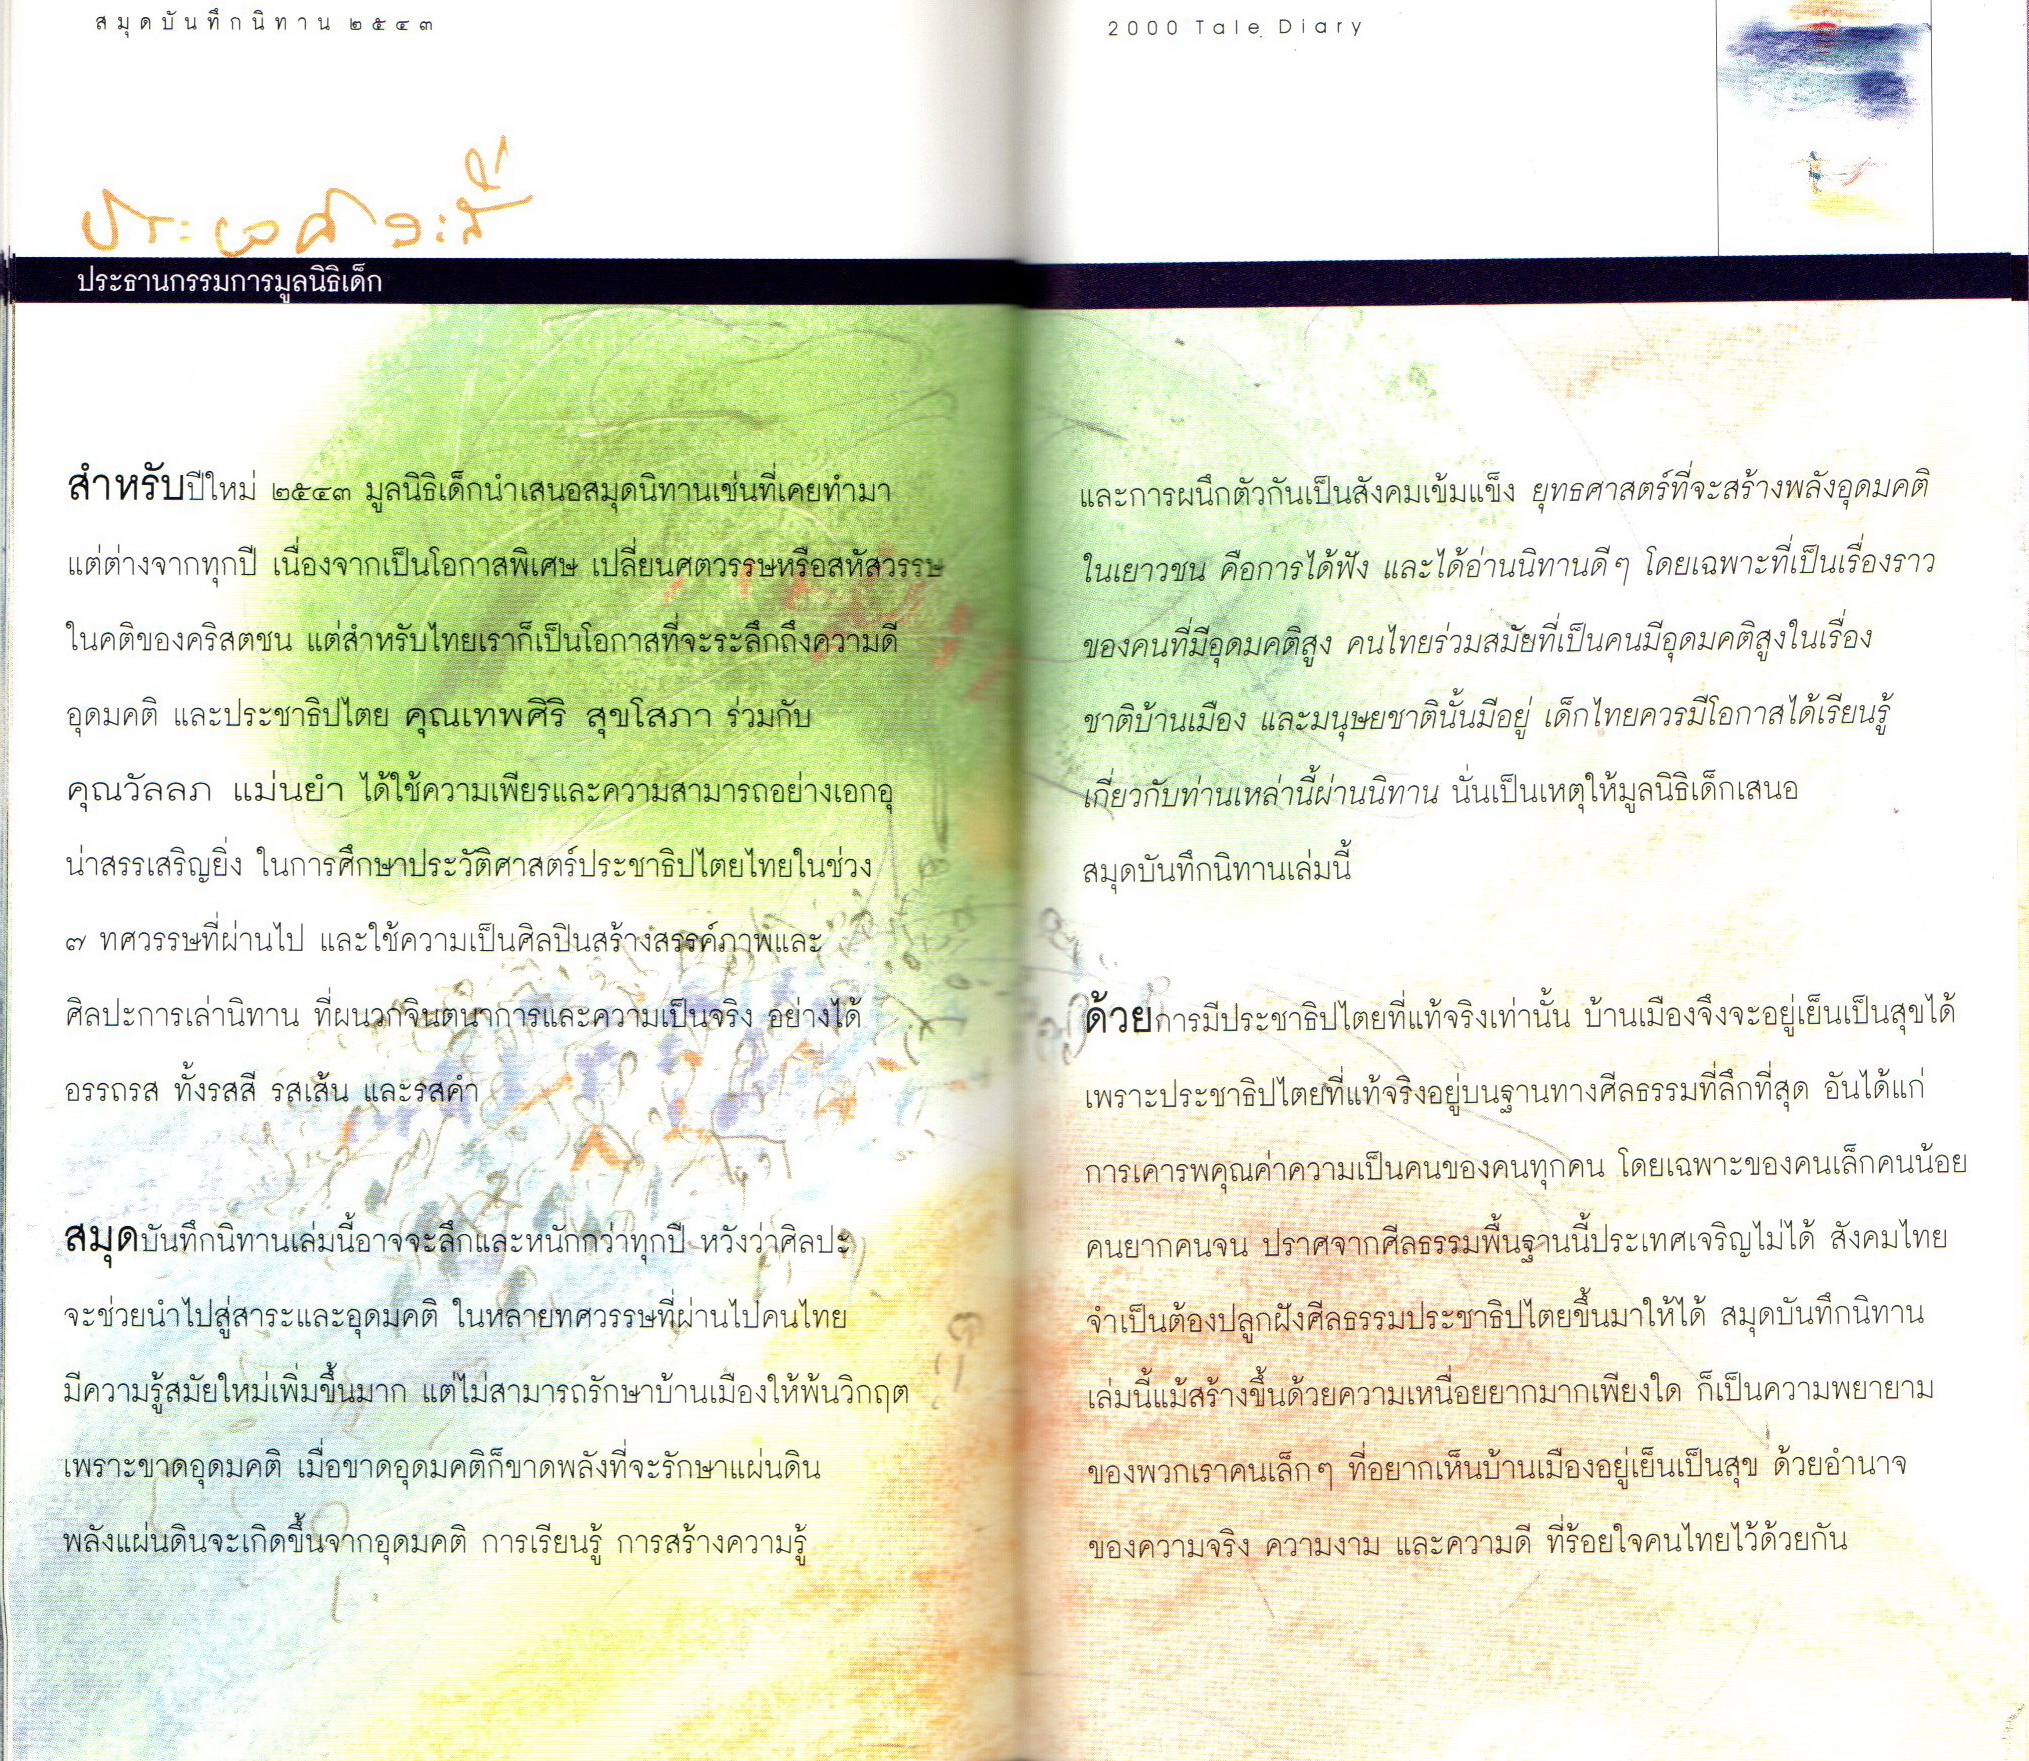 สมุดบันทึกนิทาน ๒๕๔๓
ประเวศ วะสี
ประธานกรรมการมูลนิธิเด็ก
สำหรับปีใหม่ ๒๕๔๓ มูลนิธิเด็กนำเสนอสมุดนิทานเช่นที่เคยทำมา
แต่ต่างจากทุกปี เนื่องจากเป็นโอกาสพิเศษ เปลี่ยนศตวรรษหรือสหัสวรรษ
ในคติของคริสตชน แต่สำหรับไทยเราก็เป็นโอกาสที่จะระลึกถึงความดี
อุดมคติ และประชาธิปไตย คุณเทพศิริ สุขโสภา ร่วมกับ
คุณวัลลภ แม่นยำ ได้ใช้ความเพียรและความสามารถอย่างเอกอุ
น่าสรรเสริญยิ่ง ในการศึกษาประวัติศาสตร์ประชาธิปไตยไทยในช่วง
๗ ทศวรรษที่ผ่านไป และใช้ความเป็นศิลปินสร้างสรรค์ภาพและ
ศิลปะการเล่านิทาน ที่ผนวกจินตนาการและความเป็นจริง อย่างได้
อรรถรส ทั้งรสสี รสเส้น และรสคำ
สมุดบันทึกนิทานเล่มนี้อาจจะลึกและหนักกว่าทุกปี หวังว่าศิลปะ
จะช่วยนำไปสู่สาระและอุดมคติ ในหลายทศวรรษที่ผ่านไปคนไทย
มีความรู้สมัยใหม่เพิ่มขึ้นมาก แต่ไม่สามารถรักษาบ้านเมืองให้พ้นวิกฤต
เพราะขาดอุดมคติ เมื่อขาดอุดมคติก็ขาดพลังที่จะรักษาแผ่นดิน
พลังแผ่นดินจะเกิดขึ้นจากอุดมคติ การเรียนรู้ การสร้างความรู้
2000 Tale Diary
และการผนึกตัวกันเป็นสังคมเข้มแข็ง ยุทธศาสตร์ที่จะสร้างพลังอุดมคติ
ในเยาวชน คือการได้ฟัง และได้อ่านนิทานดีๆ โดยเฉพาะที่เป็นเรื่องราว
ของคนที่มีอุดมคติสูง คนไทยร่วมสมัยที่เป็นคนมีอุดมคติสูงในเรื่อง
ชาติบ้านเมือง และมนุษยชาตินั้นมีอยู่ เด็กไทยควรมีโอกาสได้เรียนรู้
เกี่ยวกับท่านเหล่านี้ผ่านนิทาน นั่นเป็นเหตุให้มูลนิธิเด็กเสนอ
สมุดบันทึกนิทานเล่มนี้
ด้วยการมีประชาธิปไตยที่แท้จริงเท่านั้น บ้านเมืองจึงจะอยู่เย็นเป็นสุขได้
เพราะประชาธิปไตยที่แท้จริงอยู่บนฐานทางศีลธรรมที่ลึกที่สุด อันได้แก่
การเคารพคุณค่าความเป็นคนของคนทุกคน โดยเฉพาะของคนเล็กคนน้อย
คนยากคนจน ปราศจากศีลธรรมพื้นฐานนี้ประเทศเจริญไม่ได้ สังคมไทย
จำเป็นต้องปลูกฝังศีลธรรมประชาธิปไตยขึ้นมาให้ได้ สมุดบันทึกนิทาน
เล่มนี้แม้สร้างขึ้นด้วยความเหนื่อยยากมากเพียงใด ก็เป็นความพยายาม
ของพวกเราคนเล็กๆ ที่อยากเห็นบ้านเมืองอยู่เย็นเป็นสุข ด้วยอำนาจ
ของความจริง ความงาม และความดี ที่ร้อยใจคนไทยไว้ด้วยกัน